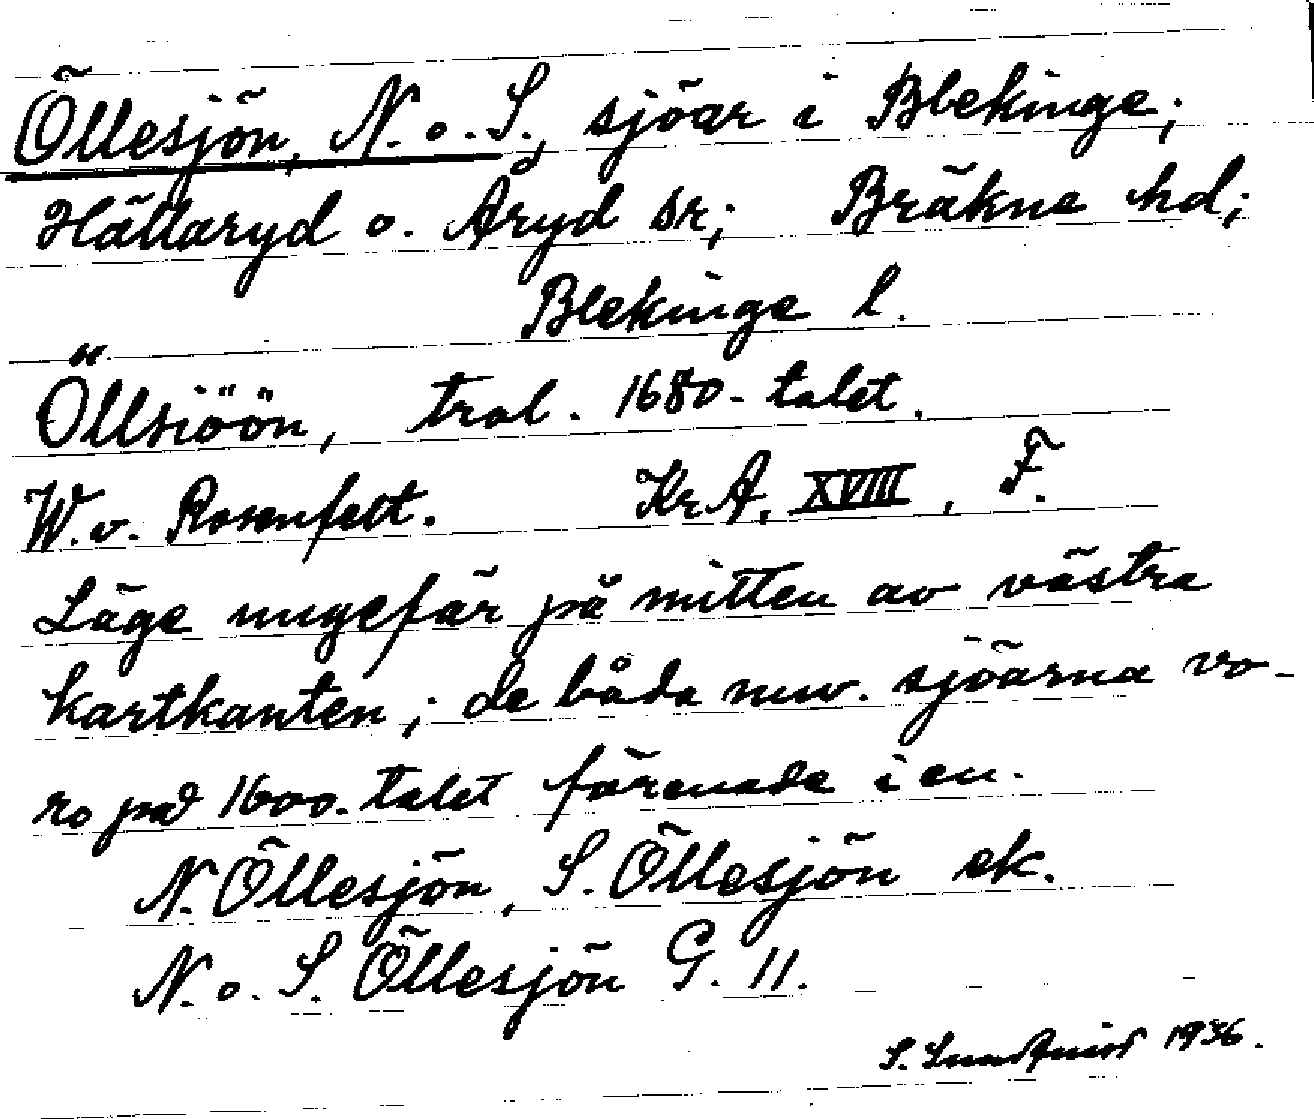 Öllesjön, N. o. S., sjöar i Blekinge;
Hällaryd o. Åryd sr; Bräkne hd;
Blekinge l.
Öllsiöön, trol. 1680-talet.
W. v. Rosenfelt. KrA, XVIII, F.
Läge ungefär på mitten av västra
kartkanten; de båda nuv. sjöarna vo-
ro på 1600-talet förenade i en.
N. Öllesjön, S. Öllesjön ek.
N. o. S. Öllesjön G. 11.
S. 1936.